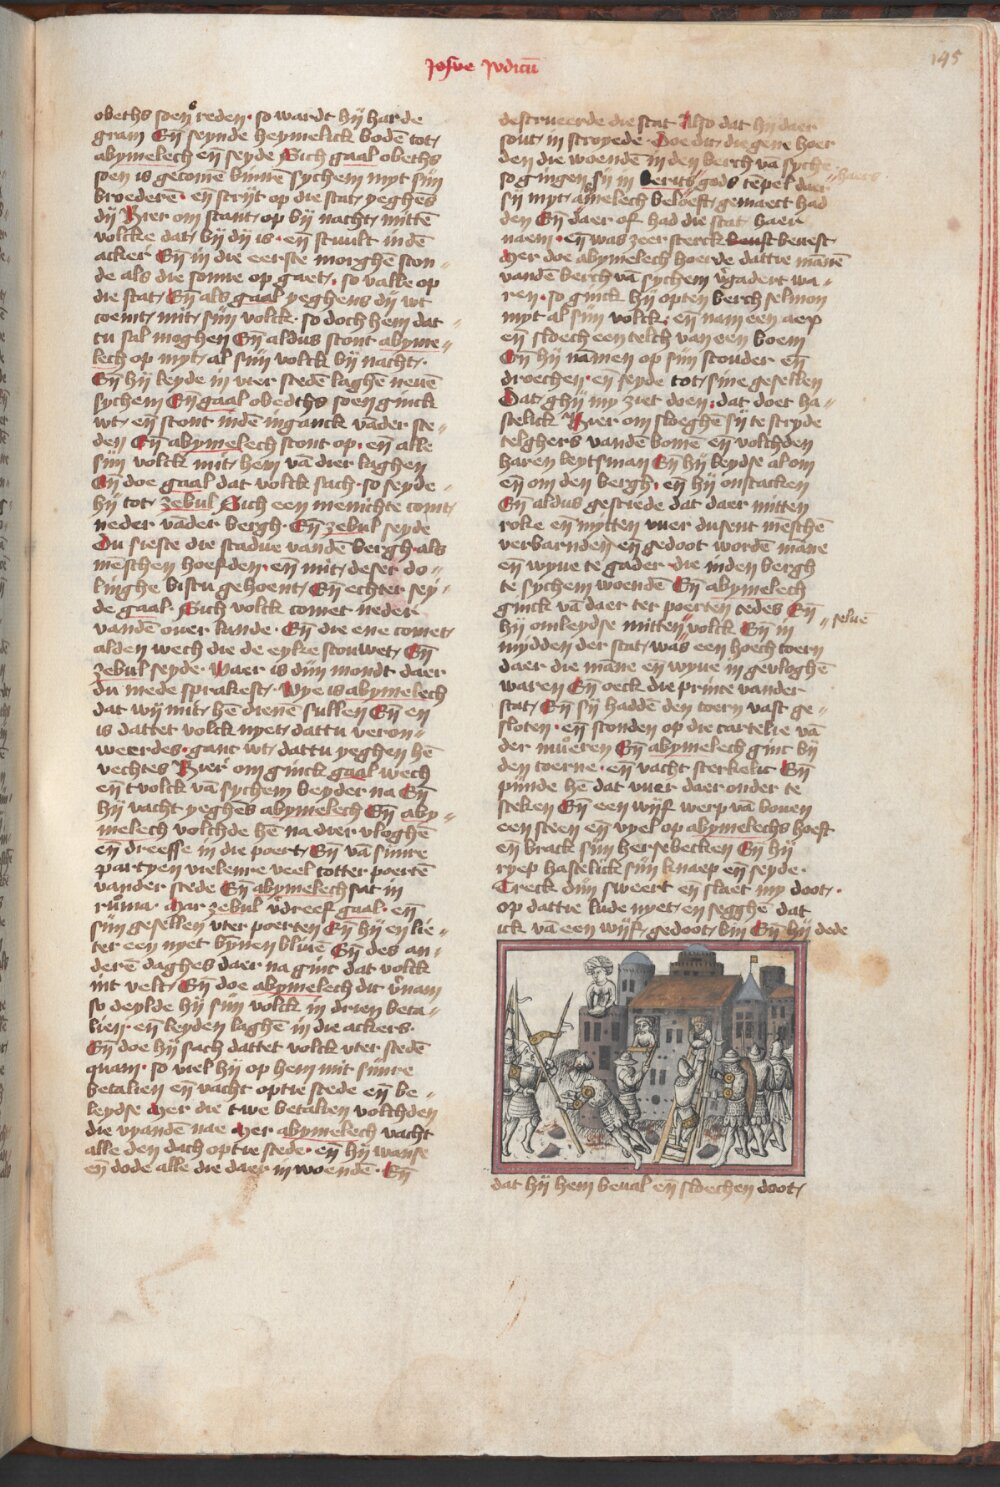 Josue Judicū
145
obeths soen reden· so wardt hij harde
gram Eñ seynde heymelick bodē tot
abymelech eñ seyde Sich gaal obeths
soen is gecomē binnē sychem myt sijn
broederē· eñ strijt op die stat yeghēs
dij Hier om stant op bij nacht mittē
volcke dat bij dij is· eñ stuult indē
acker Eñ in die eerste morghē ston-
de als die sonne op gaet· so valle op
die stat Eñ als gaal yeghens dij wt
coemt mit sijn volck· so doch hem dat
tu sal moghen Eñ aldus stont abyme-
lech op myt al sijn volck bij nacht·
Eñ hij leyde in vier stedē laghē neuē
sychem Eñ gaal obedths soen ginck
wt eñ stont indē inganck vāder ste-
den Eñ abymelech stont op· eñ alle
sijn volck mit hem vā dier laghen
Eñ doe gaal dat volck sach· so seyde
hij tot zebul Sich een menichte comt
neder vāder bergh· Eñ zebul seyde
Du sieste die scadue vandē bergh als
mēschen hoefden· eñ mit deser do-
linghe bistu gehoent Eñ echter sey-
de gaal· Sich volck comet neder
vandē ouer lande· Eñ die ene comet
alden wech die de eyke scouwet Eñ
zebul seyde· Waer is dijn mondt daer
du mede sprakest· Wye is abymelech
dat wij mit hē dienē sullen Eñ en
is dattet volck nyet dattu veron-
weerdes· ganc wt dattu yeghen hē
vechtes Hier om ginck gaal wech
eñ t volck vā sychem beyder na Eñ
hij vacht yeghēs abymelech Eñ aby-
melech volchde hē na dier vloghē
eñ dreeffe in die poert Eñ vā sinre
partyen vielenre veel totter poertē
vander stede Eñ abymelech sat in
ruma· Mar zebul v̄dreef gaal· eñ
sijn gesellen vter poerten Eñ hij en lie-
ter een nyet bynen bliuē Eñ des an-
derē daghes daer na ginc dat volck
int velt Eñ doe abymelech dit v̄nam
so deylde hij sijn volck in drien bata-
lien· eñ leyden laghē in die ackers·
Eñ doe hij sach dattet volck vter stedē
quam· so viel hij op hem mit sinre
betalien eñ vacht optie stede eñ be-
leydse Mer die twe betalien volchden
die vyanden nae Mer abymelech vacht
alle den dach optie stede· eñ hij wanse
eñ dode alle die daer in woendē· Eñ
destrueerde die stat Also dat hij daer
sout in stroyede· Doe dit diegene hoer
den die woendē in den berch vā syche
so gingen sij in berits gods tēpel daer
sij myt abymelech beloeft gemaect had
den Eñ daer of had die stat haer
naem· eñ was zeer sterck bevest
Mer doe abymelech hoerde dattie mānē
vandē berch vā sychem v̄gadert wa-
ren· so ginck hij opten berch selmon
myt al sijn volck· eñ nam een aep
eñ sloech een telch van een boem
Eñ hij namen op sijn scouder eñ
droechen· eñ seyde tot sine gesellen
Dat ghij my ziet doen· dat doet ha-
stelick Hier om sloeghē sij te stryde
telghers vandē bome eñ volchden
haren leytsman Eñ hij leydse al om
eñ om den bergh· eñ hij onstacken
Eñ aldus gesciede dat daer mitten
roke eñ mytten vuer dusent mēschē
verbarnden eñ gedoot wordē māne
eñ wyue te gader die inden bergh
te sychem woendē Eñ abymelech
ginck vā daer ter poertē tedes Eñ
hij omleydse mitten volck Eñ in
selue
mydden der stat was een hoech toern
daer die māne eñ wyue in gevloghē
waren Eñ oeck die prince vander
stat Eñ sij haddē den toern vast ge-
sloten· eñ stonden op die cartelie vā
der mueren Eñ abymelech ginc bij
den toerne· eñ vacht sterkelic Eñ
pijnde hē dat vuer daer onder te
steken Eñ een wijf werp vā bouen
een steen eñ vyel op abymelechs hoeft
eñ brack sijn hersebecken Eñ hij
ryep haestelick sijn knaep eñ seyde·
Treck dijn sweert eñ slaet my doot·
op dattie lude nyet en segghē dat
ick vā een wijf gedoot bin Eñ hij dede
dat hij hem beual eñ sloechen doot